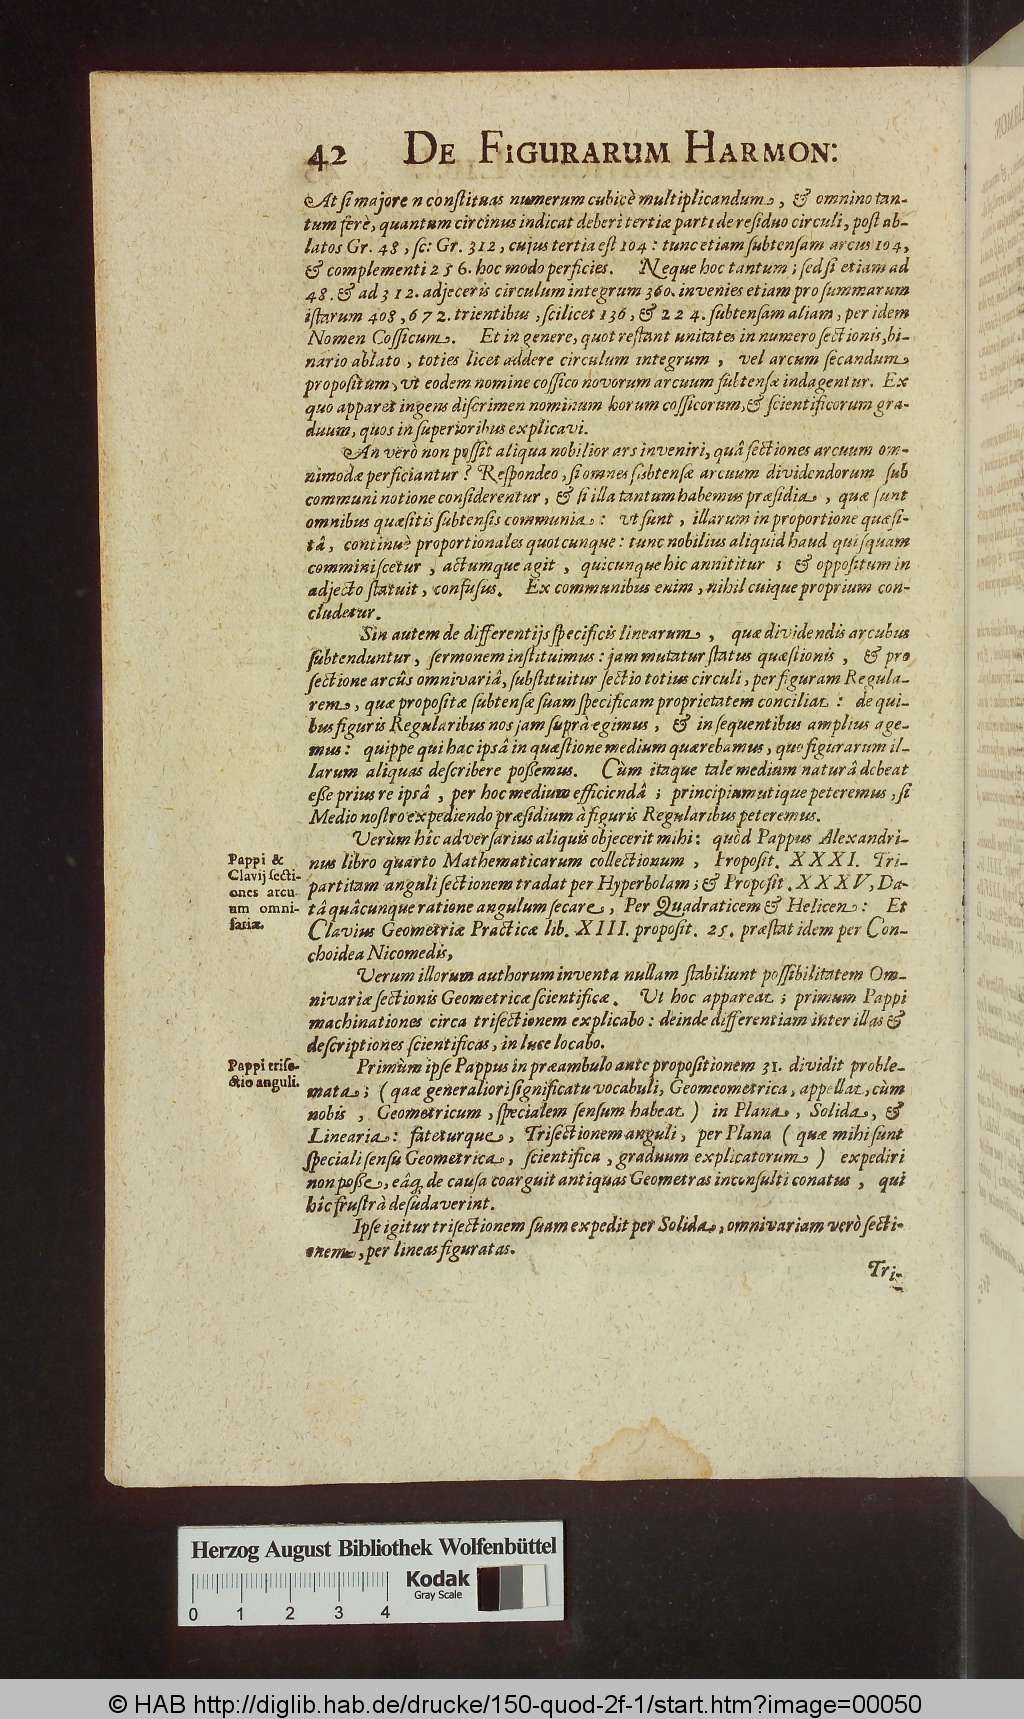 42 DE FIGURARUM HARMON:
At si majorem constituas numerum cubicè multiplicandum, & omnino tan-
tum ferè, quantum circinus indicat deberi tertiæ parti de residuo circuli, post ab-
latos Gr. 48, sc: Gr. 312, cujus tertia est 104: tunc etiam subtensam arcus 104,
& complementi 256. hoc modo perficies. Neque hoc tantum; sed si etiam ad
48. & ad 312. adjeceris circulum integrum 360. invenies etiam pro summarum
istarum 408, 672. trientibus, scilicet 136, & 224. subtensam aliam, per idem
Nomen Cossicum. Et in genere, quot restant unitates in numero sectionis, bi-
nario ablato, toties licet addere circulum integrum, vel arcum secandum
propositum, ut eodem nomine cossico novorum arcuum subtensæ indagentur. Ex
quo apparet ingens discrimen nominum horum cossicorum, & scientificorum gra-
duum, quos in superioribus explicavi.
An verò non possit aliqua nobilior ars inveniri, quâ sectiones arcuum om-
nimodæ perficiantur? Respondeo, si omnes subtensæ arcuum dividendorum sub
communi notione considerentur, & si illa tantum habemus præsidia, quæ sunt
omnibus quæsitis subtensis communia: ut sunt, illarum in proportione quæsi-
tâ, continuè proportionales quotcunque: tunc nobilius aliquid haud quisquam
comminiscetur, actumque agit, quicunque hic annititur; & oppositum in
adjecto statuit, confusus. Ex communibus enim, nihil cuique proprium con-
cludetur.
Sin autem de differentijs specificis linearum, quæ dividendis arcubus
subtenduntur, sermonem instituimus: jam mutatur status quæstionis, & pro
sectione arcûs omnivariâ, substituitur sectio totius circuli, per figuram Regula-
rem, quæ propositæ subtensæ suam specificam proprietatem conciliat: de qui-
bus figuris Regularibus nos jam suprà egimus, & in sequentibus amplius age-
mus: quippe qui hac ipsâ in quæstione medium quærebamus, quo figurarum il-
larum aliquas describere possemus. Cùm itaque tale medium naturâ debeat
esse prius re ipsâ, per hoc medium efficiendâ; principium utique peteremus, si
Medio nostro expediendo præsidium à figuris Regularibus peteremus.
Verùm hîc adversarius aliquis objecerit mihi: quòd Pappus Alexandri-
Pappi &
Clavij secti-
ones arcu
um omni-
fariæ.
nus libro quarto Mathematicarum collectionum, Proposit. XXXI. Tri-
partitam anguli sectionem tradat per Hyperbolam; & Proposit. XXXV, Da-
tâ quâcunque ratione angulum secare, Per Quadraticem & Helicen: Et
Clavius Geometriæ Practicæ lib. XIII. proposit. 25. præstat idem per Con-
choidea Nicomedis,
Verum illorum authorum inventa nullam stabiliunt possibilitatem Om-
nivariæ sectionis Geometricæ scientificæ. Ut hoc appareat; primum Pappi
machinationes circa trisectionem explicabo: deinde differentiam inter illas &
descriptiones scientificas, in luce locabo.
Pappi trise-
ctio anguli.
Primùm ipse Pappus in præambulo ante propositionem 31. dividit proble-
mata; (qaæ generaliori significatu vocabuli, Geomeometrica, appellat, cùm
nobis, Geometricum, specialem sensum habeat) in Plana, Solida, &
Linearia: fateturque, Trisectionem anguli, per Plana (quæ mihi sunt
speciali sensu Geometrica, scientifica, graduum explicatorum) expediri
non posse, eâq́ de causa coarguit antiquas Geometras inconsulti conatus, qui
hîc frustrà desudaverint.
Ipse igitur trisectionem suam expedit per Solida, omnivariam verò secti-
onem, per lineas figuratas.
Tri-
Herzog August Bibliothek Wolfenbüttel
Kodak
Gray Scale
0 1 2 3 4
© HAB http://diglib.hab.de/drucke/150-quod-2f-1/start.htm?image=00050